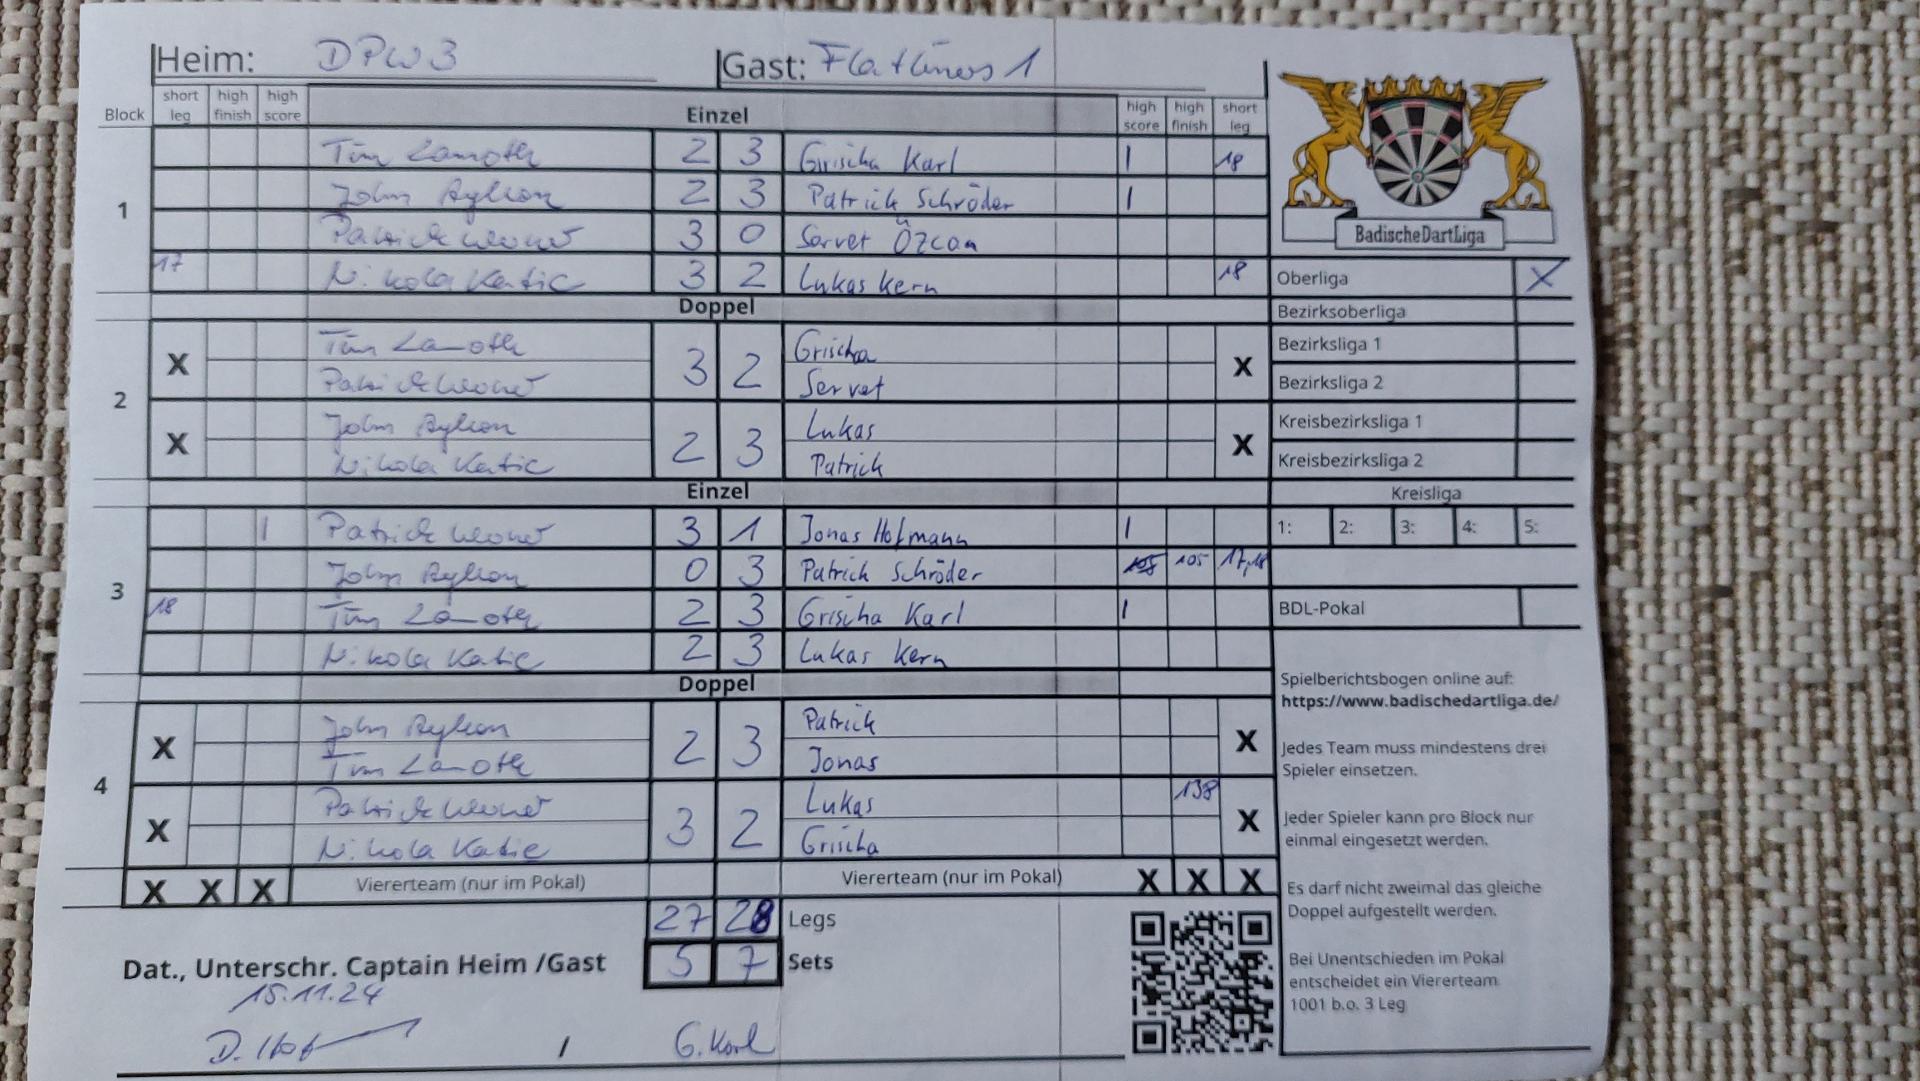 Heim: DPW3 Gast: Flatliners 1
Block short leg high finish high score Einzel high score high finish short leg
1
Tim Lamoth 2 3 Grischa Karl 1 18
John 2 3 Patrick Schröder 1
Patrick 3 0 Servet Özcan
17 Nikola Katic 3 2 Lukas Kern 18
Doppel
2
X Tim Lamoth 3 2 Grischa X
Patrick Servet
X John 2 3 Lukas X
Nikola Katic Patrick
Einzel
3
1 Patrick 3 1 Jonas Hofmann 1
John 0 3 Patrick Schröder 105 105 17,18
18 Tim Lamoth 2 3 Grischa Karl 1
Nikola Katic 2 3 Lukas Kern
Doppel
4
X John 2 3 Patrick X
Tim Lamoth Jonas
X Patrick 3 2 Lukas 138 X
Nikola Katic Grischa
X X X Viererteam (nur im Pokal) Viererteam (nur im Pokal) X X X
27 28 Legs
5 7 Sets
Dat., Unterschr. Captain Heim /Gast
15.11.24
/ G. Karl
BadischeDartLiga
Oberliga X
Bezirksoberliga
Bezirksliga 1
Bezirksliga 2
Kreisbezirksliga 1
Kreisbezirksliga 2
Kreisliga
1: 2: 3: 4: 5:
BDL-Pokal
Spielberichtsbogen online auf:
https://www.badischedartliga.de/
Jedes Team muss mindestens drei
Spieler einsetzen.
Jeder Spieler kann pro Block nur
einmal eingesetzt werden.
Es darf nicht zweimal das gleiche
Doppel aufgestellt werden.
Bei Unentschieden im Pokal
entscheidet ein Viererteam
1001 b.o. 3 Leg